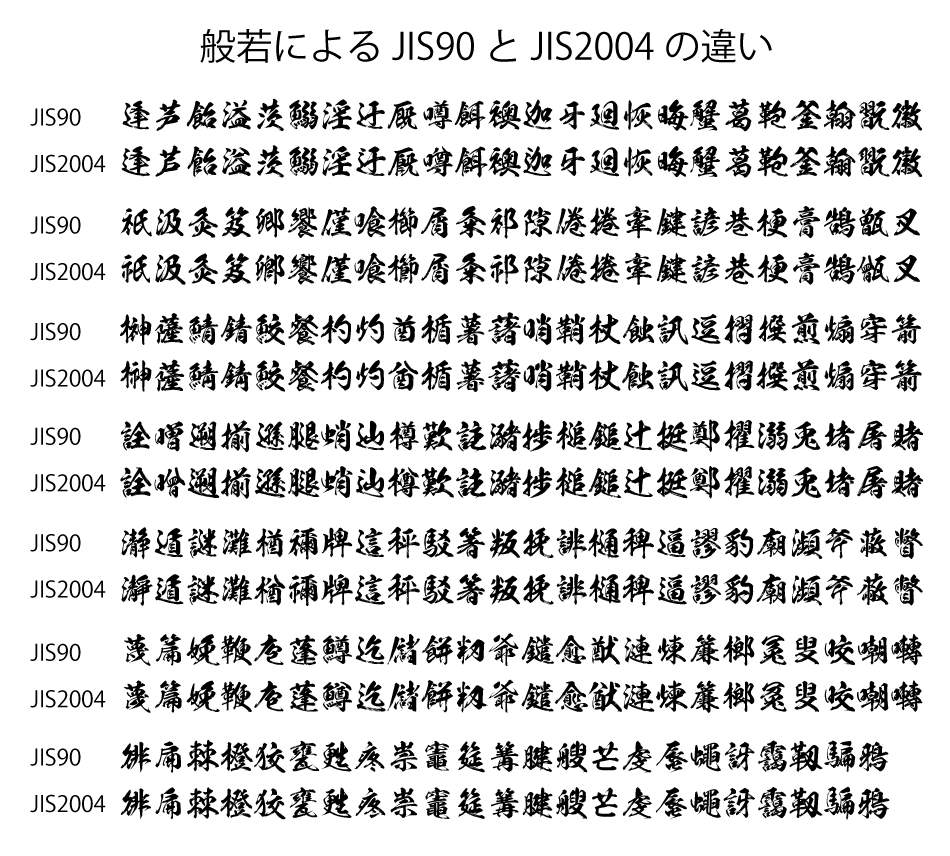 般若による JIS90 と JIS2004 の違い
JIS90 逢芦飴溢茨鰯淫迂厩噂餌襖迦牙廻恢晦蟹葛鞄釜翰翫徽
JIS2004 逢芦飴溢茨鰯淫迂厩噂餌襖迦牙廻恢晦蟹葛鞄釜翰翫徽
JIS90 祇汲灸笈卿饗僅喰櫛屑粂祁隙倦捲牽鍵諺巷梗膏鵠甑叉
JIS2004 祇汲灸笈卿饗僅喰櫛屑粂祁隙倦捲牽鍵諺巷梗膏鵠甑叉
JIS90 榊薩鯖錆鮫餐杓灼酋楯薯藷哨鞘杖蝕訊逗摺撰煎煽穿箭
JIS2004 榊薩鯖錆鮫餐杓灼酋楯薯藷哨鞘杖蝕訊逗摺撰煎煽穿箭
JIS90 詮噌遡揃遜腿蛸辿樽歎註瀦捗槌鎚辻挺鄭擢溺兎堵屠賭
JIS2004 詮噌遡揃遜腿蛸辿樽歎註瀦捗槌鎚辻挺鄭擢溺兎堵屠賭
JIS90 瀞遁謎灘楢禰牌這秤駁箸叛挽誹樋稗逼謬豹廟瀕斧蔽瞥
JIS2004 瀞遁謎灘楢禰牌這秤駁箸叛挽誹樋稗逼謬豹廟瀕斧蔽瞥
JIS90 蔑篇娩鞭庖蓬鱒迄儲餅籾爺鑓愈猷漣煉簾榔冤叟咬嘲囀
JIS2004 蔑篇娩鞭庖蓬鱒迄儲餅籾爺鑓愈猷漣煉簾榔冤叟咬嘲囀
JIS90 徘扁棘橙狡甕甦疼祟竈筵篝腱艘芒虔蜃蠅訝靄靱騙鴉
JIS2004 徘扁棘橙狡甕甦疼祟竈筵篝腱艘芒虔蜃蠅訝靄靱騙鴉